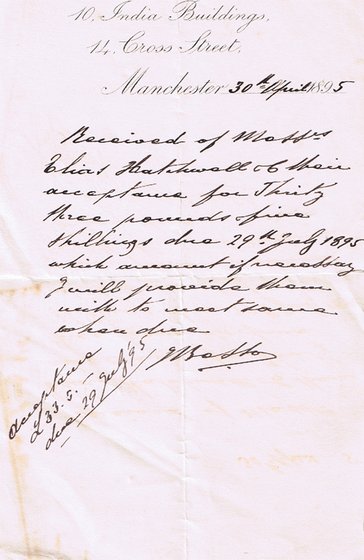 10, India Buildings,
14, Cross Street,
Manchester 30th April 1895
Received of Messrs
Elias Hatchwell & Co their
acceptance for Thirty
three pounds & five
Shillings due 29th July 1895
which amount if necessary
I will provide them
with to meet same
when due
acceptance
£33.5.—
due 29 July '95